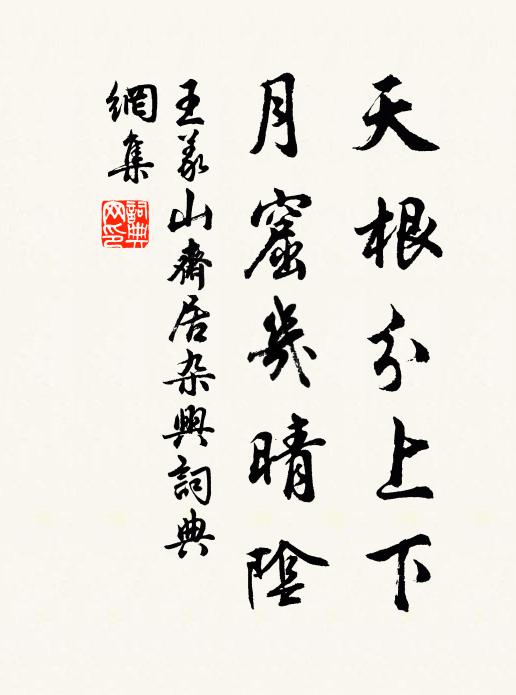 天根分上下
月窟幾晴陰
王义山齋居杂興詞典
網集
詞典网印